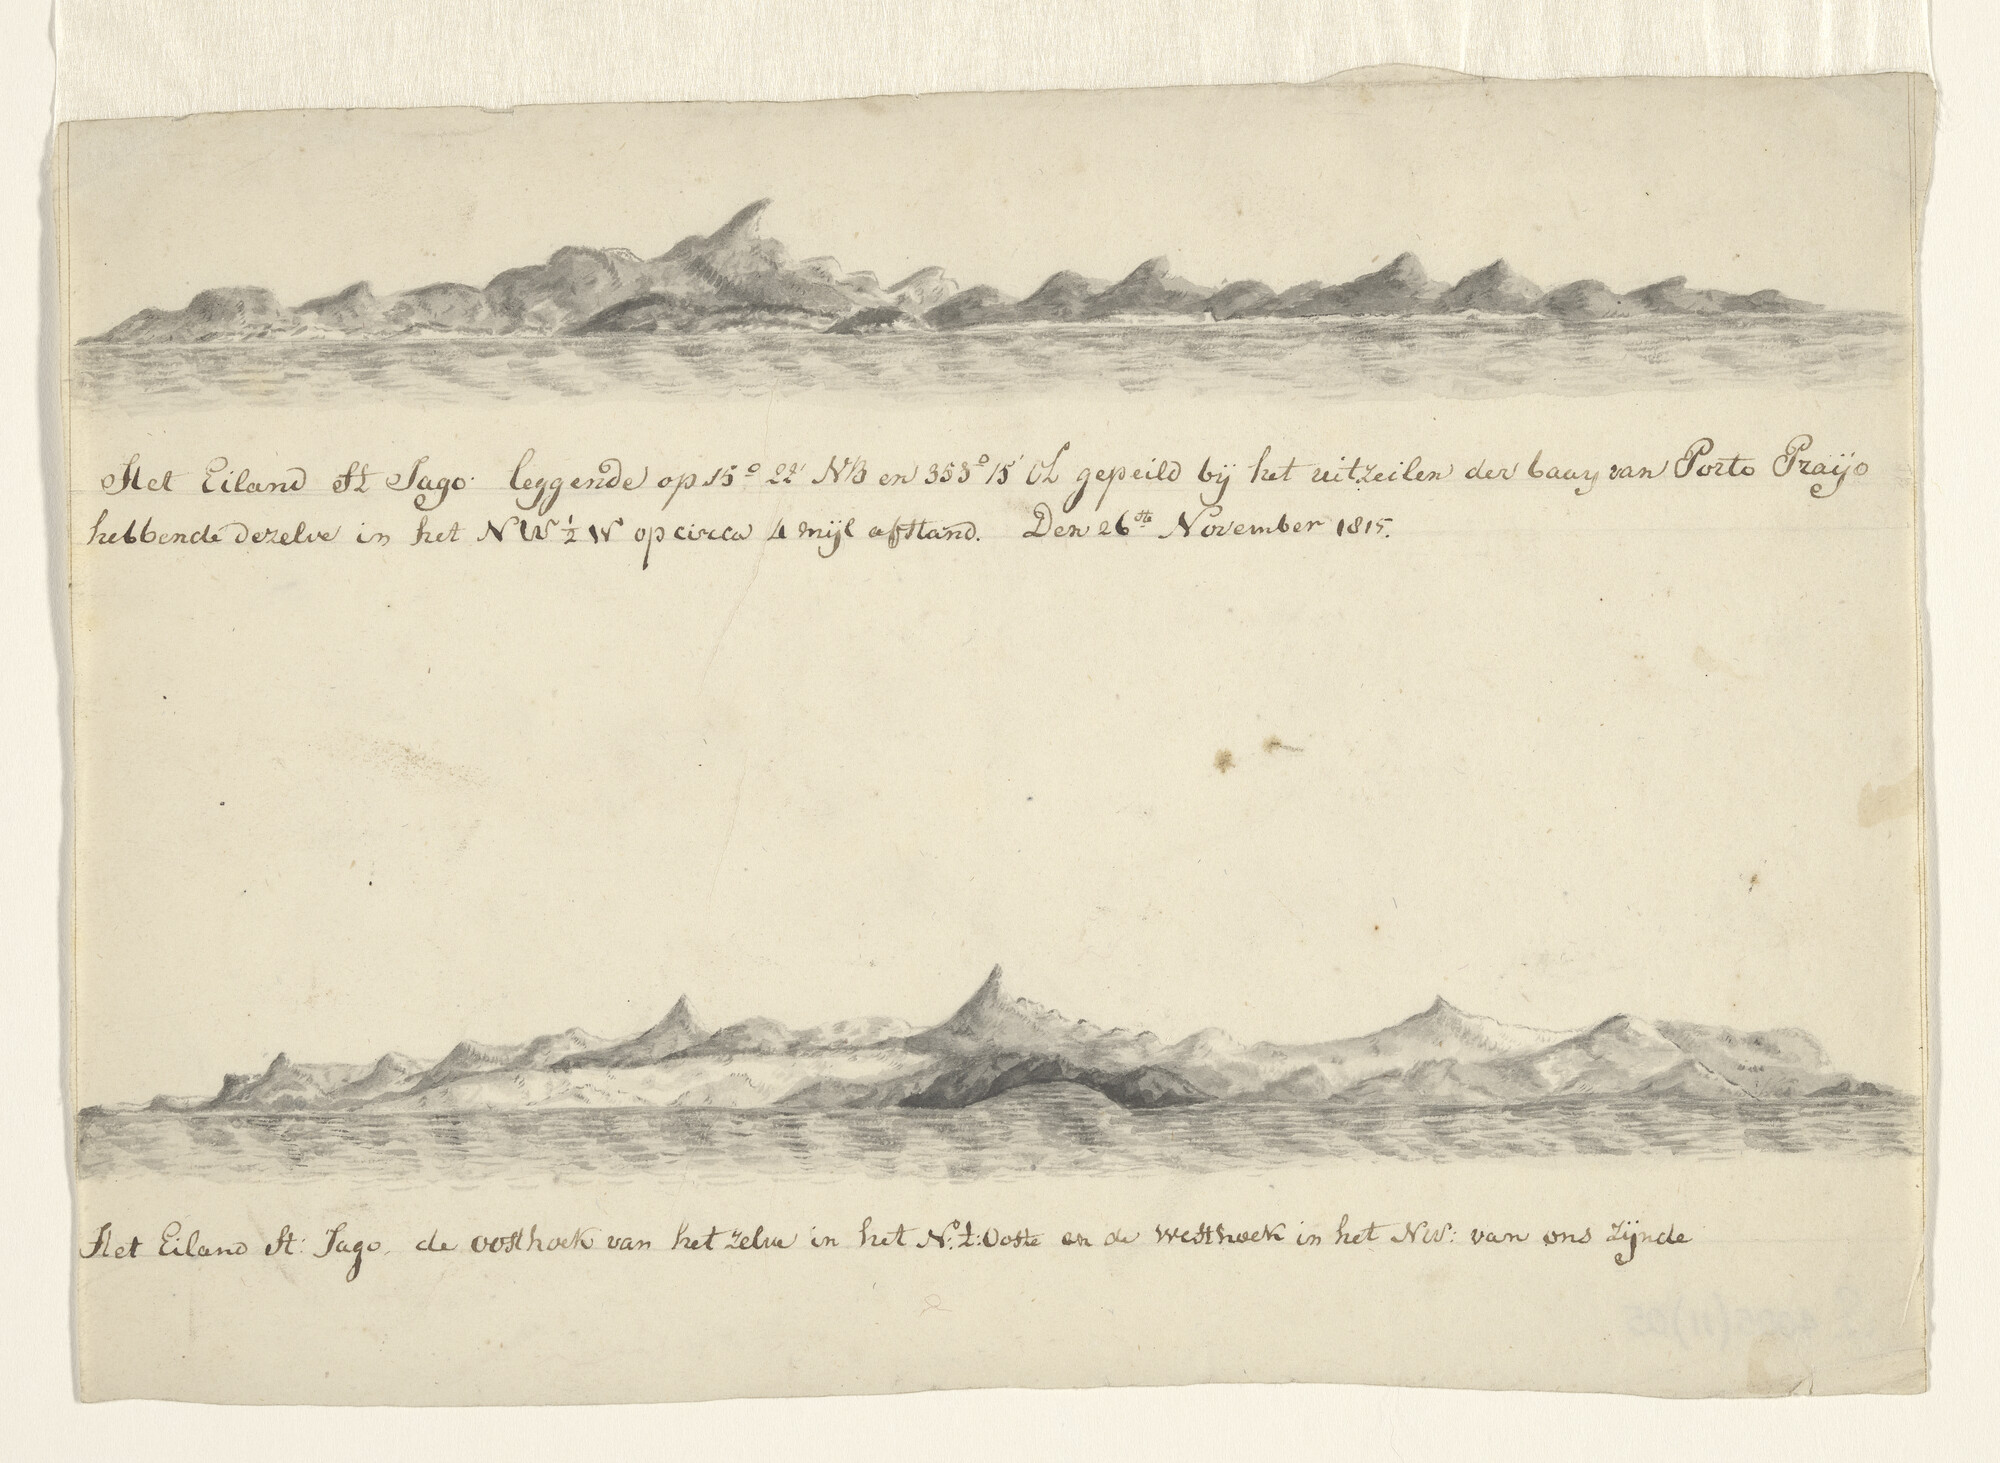 Het Eiland St Jago leggende op 15° 22' NB en 353° 15' OL gepeild bij het uitzeilen der baay van Porto Praijo
hebbende dezelve in het NW ½ W op circa 4 mijl afstand. Den 26ste November 1815.
Het Eiland St: Jago. de oosthoek van het zelve in het N. t: Ooste en de westhoek in het NW: van ons zijnde